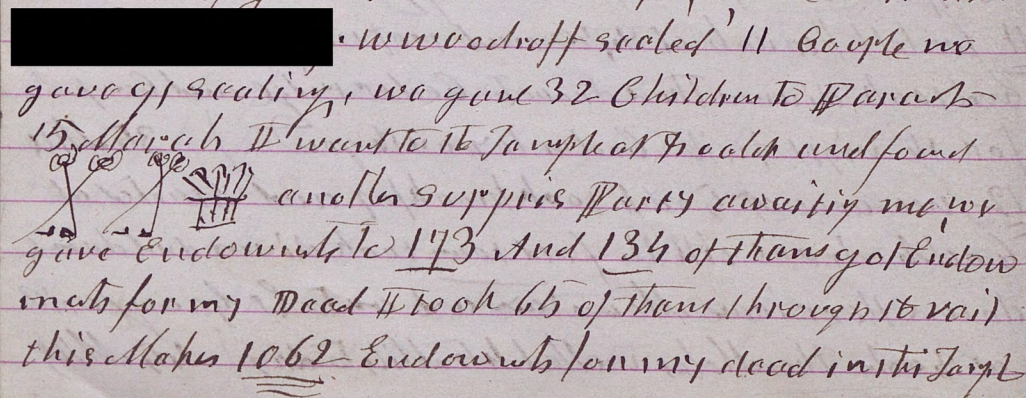 . W Woodruff sealed 11 Couple we
gave 91 sealing, we gave 32 Children to Parants
15 March I went to th Temple at 7 oclok and found
anothr Surpris Party awaitig me, we
gave Endowmts to 173 And 134 of thems got Endow
mets for my Dead I took 65 of them through th vail
this Makes 1062 Endowmts for my dead in th Templ